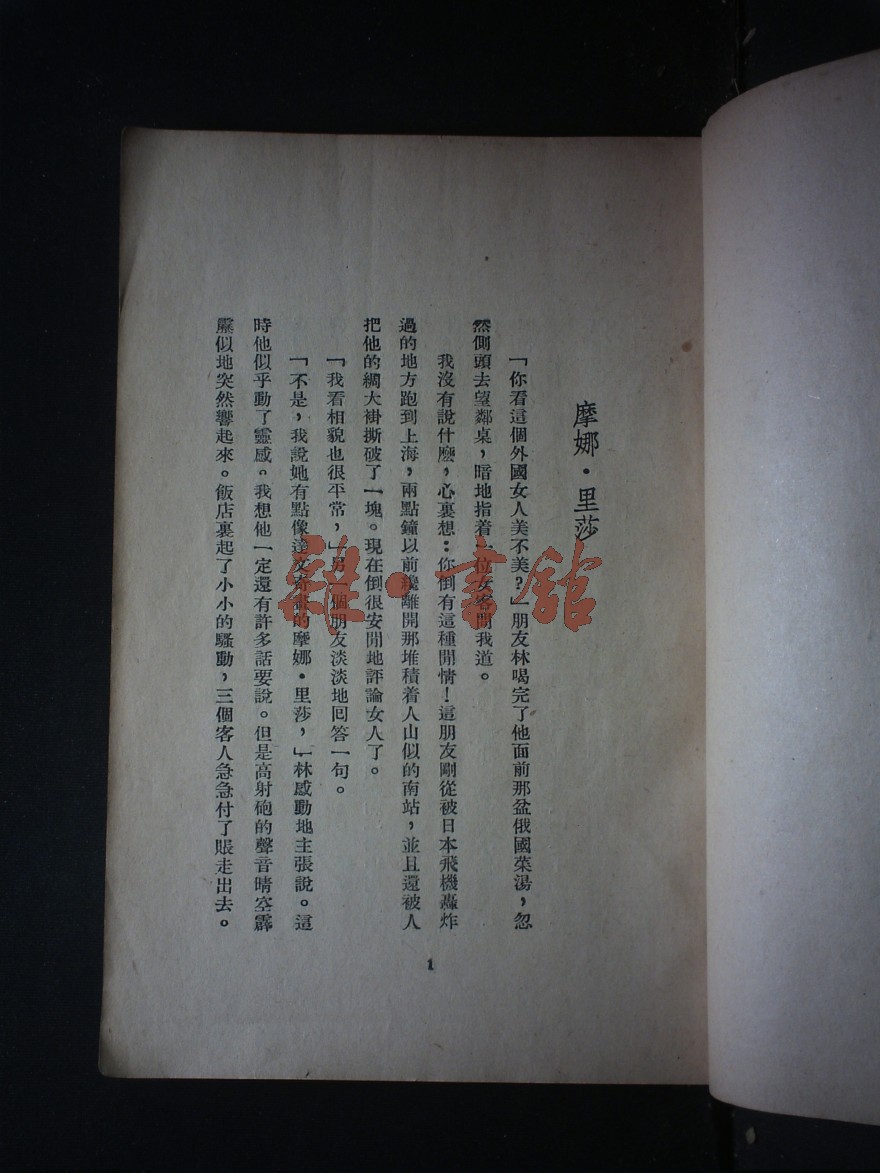 摩娜·里莎
「你看這個外國女人美不美？」朋友林喝完了他面前那盆俄國菜湯，忽
然側頭去望鄰桌，暗地指着一位女客問我道。
我沒有說什麽，心裏想：你倒有這種閒情！這朋友剛從被日本飛機轟炸
過的地方跑到上海，兩點鐘以前纔離開那堆積着人山似的南站，並且還被人
把他的綢大褂撕破了一塊。現在倒很安閒地評論女人了。
「我看相貌也很平常，」另一個朋友淡淡地回答一句。
「不是，我說她有點像達文奇畫的摩娜·里莎，」林感動地主張說。這
時他似乎動了靈感。我想他一定還有許多話要說。但是高射砲的聲音晴空霹
靂似地突然響起來。飯店裏起了小小的騷動，三個客人急急付了賬走出去。
1
雜·書館